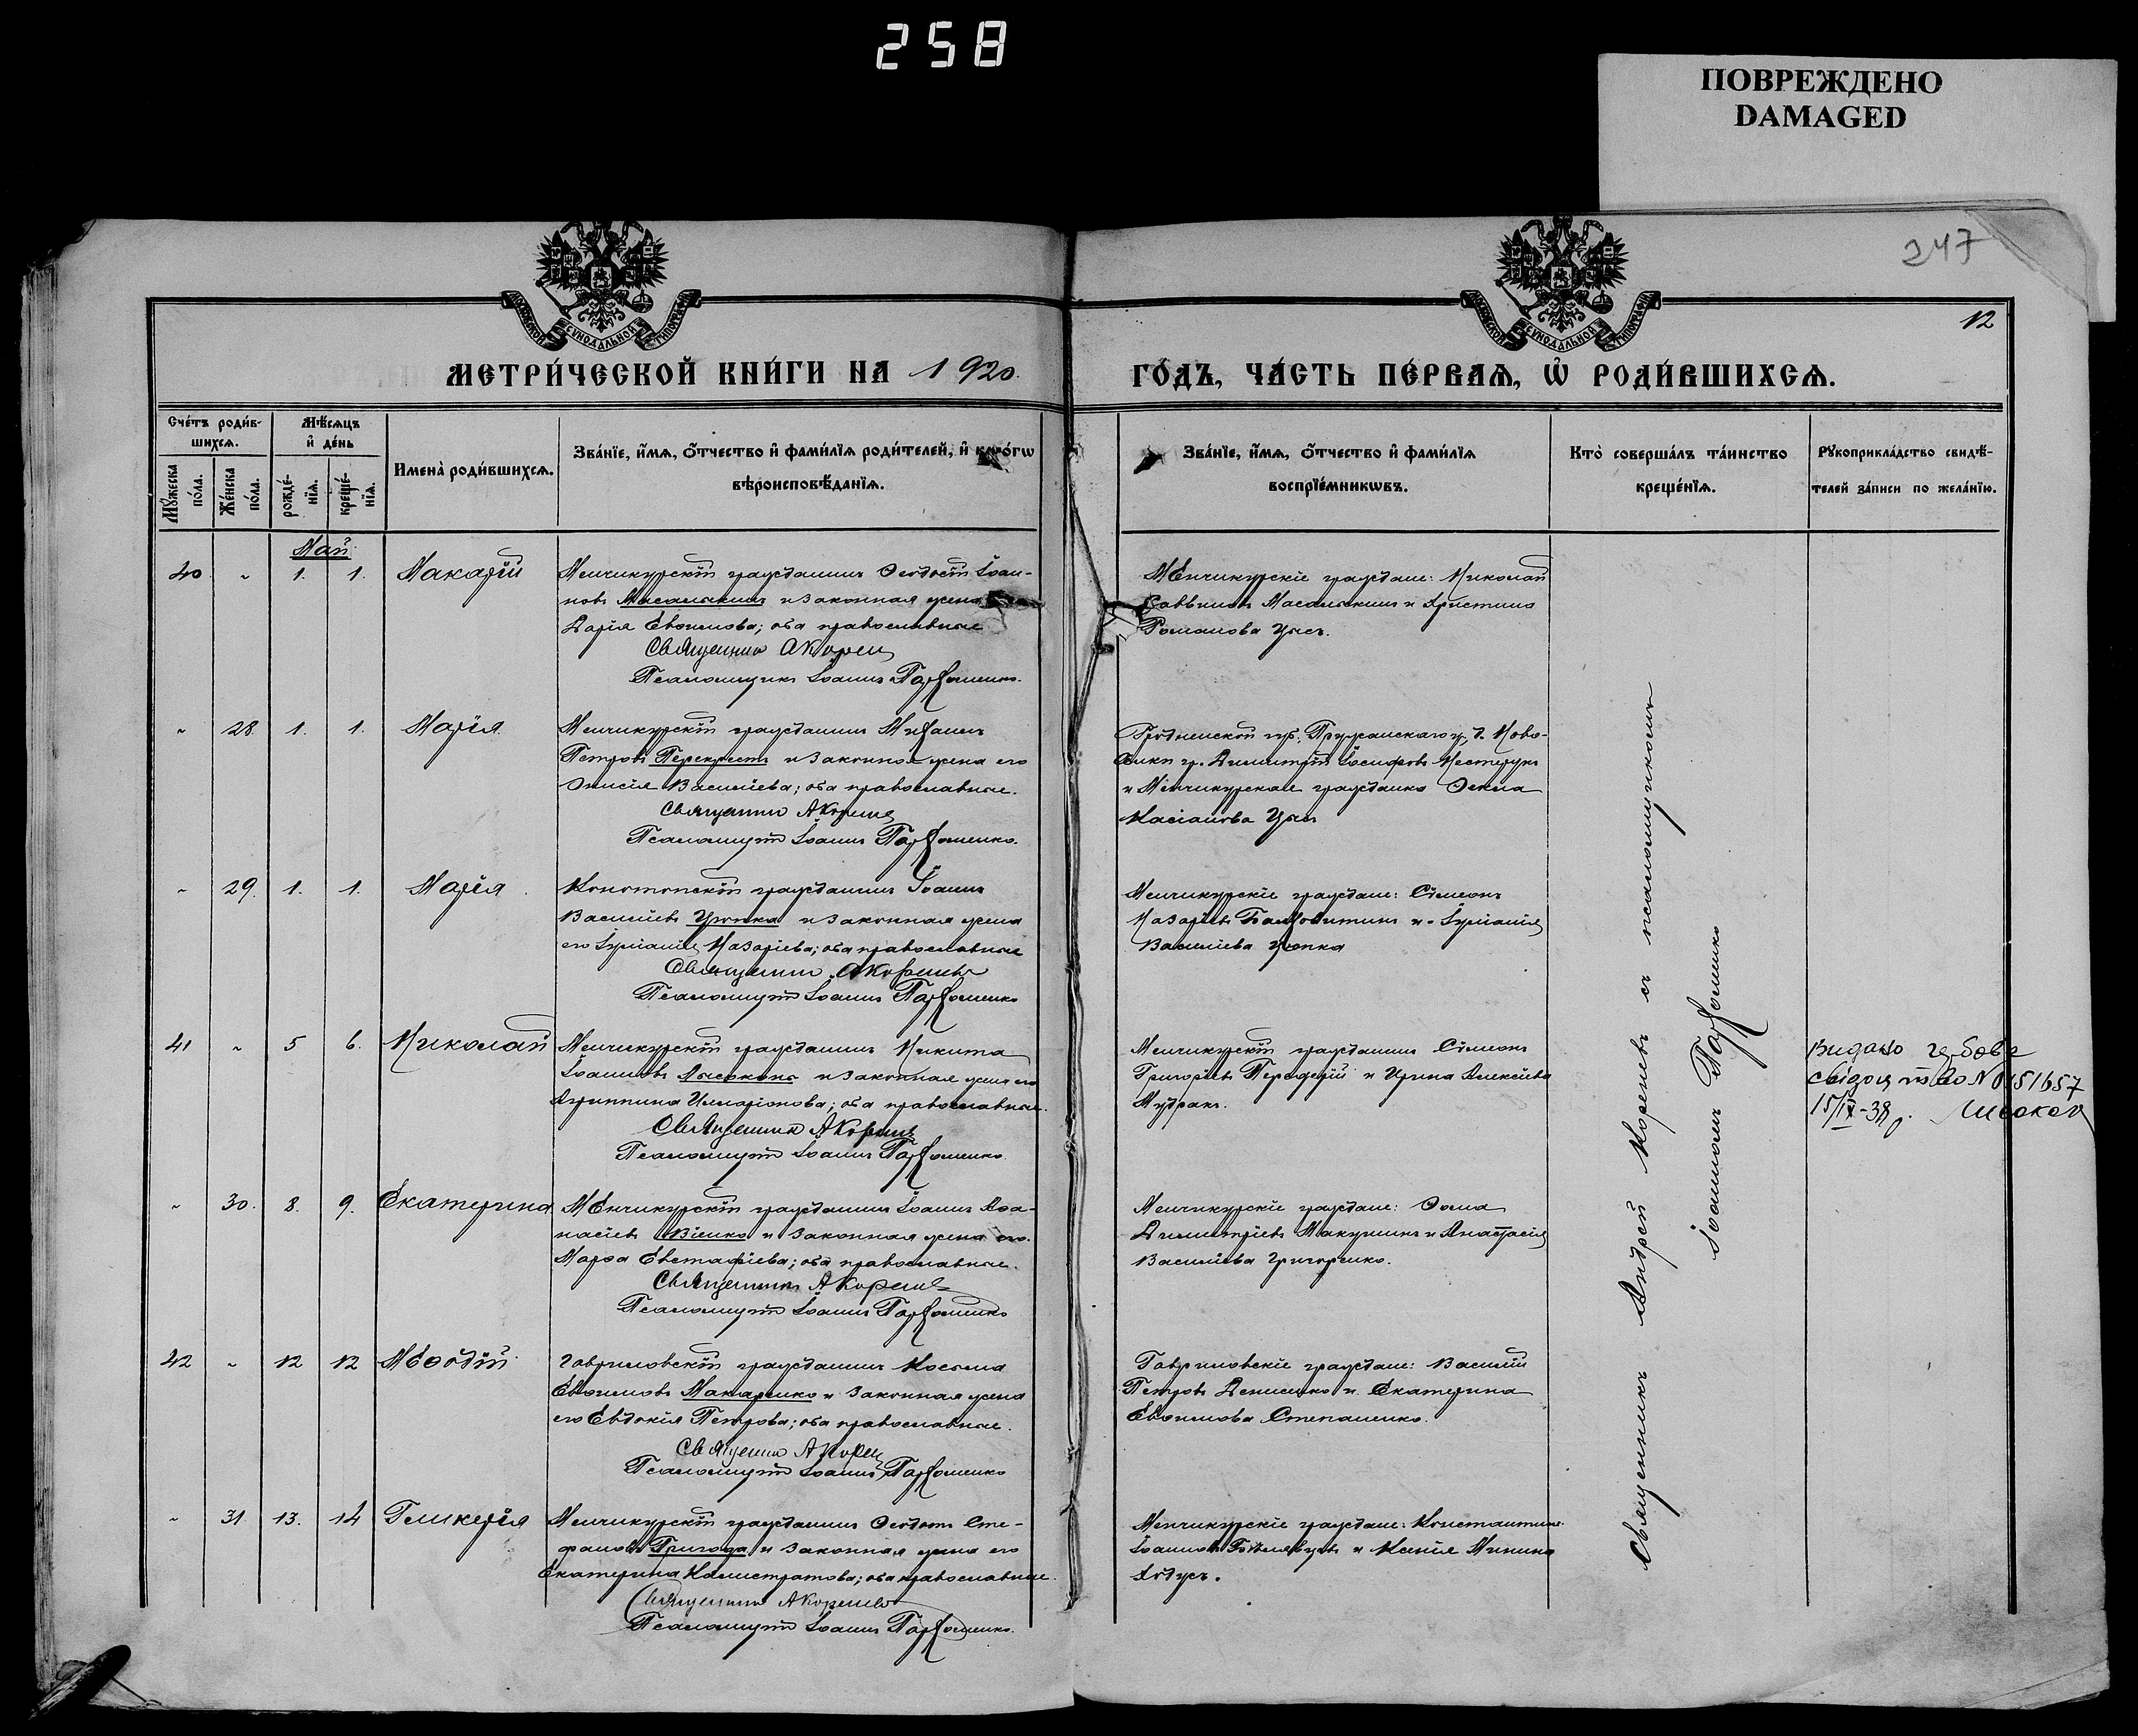 258
ПОВРЕЖДЕНО
DAMAGED
247
12
МЕТРИ́ЧЕСКОЙ КНИ́ГИ НА 1920.
ГО́ДЪ, ЧА́СТЬ ПЕ́РВАѦ, Ѡ҆ РОДИ́ВШИХСѦ.
Сче́тъ роди́в-
шихсѧ.
Мꙋ́жеска по́ла.
Же́нска по́ла.
Мѣ́сѧцъ
и҆ де́нь
рожде́-нїѧ.
креще́-нїѧ.
Имена̀ роди́вшихсѧ.
Зва́нїе, и҆́мѧ, ѻ҆́тчество и҆ фами́лїѧ роди́телей, и҆ кото́рагѡ
вѣроисповѣ́данїѧ.
Зва́нїе, и҆́мѧ, ѻ҆́тчество и҆ фами́лїѧ
воспрїе́мникѡвъ.
Кто̀ соверша́лъ та́инство
креще́нїѧ.
Рꙋкоприкла́дство свидѣ́-
телей за́писи по жела́нїю.
Май
40 " 1. 1. Макарій
Менчикурскій гражданинъ Ѳеодосій Іоан-
новъ Масальскинъ и законная жена
Дарія Евѳимова; оба православные
Священникъ А Корен
Псаломщикъ Іоаннъ Пархоменко.
Менчикурскіе граждане: Николай
Саввиновъ Масальскинъ и Христина
Романова
" 28. 1. 1. Марія
Менчикурскій гражданинъ Михаилъ
Петровъ Перехрестъ и законная жена его
Анисія Васильева; оба православные.
Священникъ А Корень
Псаломщикъ Іоаннъ Пархоменко.
Гродненской губ., Пружанскаго у., д. Ново-
гр. Димитрій Іосифовъ Нестерукъ
и Менчикурская гражданка Ѳекла
Касіанова
" 29. 1. 1. Марія
Конотопскій гражданинъ Іоаннъ
Васильевъ Цюпка и законная жена
его Іуліанія Назаріева; оба православные
Священникъ А Кореневъ
Псаломщикъ Іоаннъ Пархоменко
Менчикурскіе граждане: Симеонъ
Назаріевъ и Іуліанія
Васильева Цюпка
41 " 5 6. Николай
Менчикурскій гражданинъ Никита
Іоанновъ Лысоконь и законная жена его
Агриппина Иларіонова; оба православные.
Священникъ А Корень
Псаломщикъ Іоаннъ Пархоменко
Менчикурскій гражданинъ Симеонъ
Григорьевъ Передерій и Ирина Алексіева
Мудракъ.
Видано
свідоцтво № 0151657
15/IX-38 р.
" 30. 8. 9. Екатерина
Менчикурскій гражданинъ Іоаннъ Аѳа-
насіевъ Віенко и законная жена его
Марѳа Евстафіева; оба православные.
Священникъ А Корень
Псаломщикъ Іоаннъ Пархоменко
Менчикурскіе граждане: Ѳома
Димитріевъ и Анастасія
Васильева Григоренко.
42 " 12 12 Меѳодій
Гавриловскій гражданинъ Косьма
Евѳимовъ Макаренко и законная жена
его Евдокія Петрова; оба православные.
Священникъ А Корен
Псаломщикъ Іоаннъ Пархоменко
Гавриловскіе граждане: Василій
Петровъ Денисенко и Екатерина
Евѳимова Степаненко.
" 31 13. 14 Гликерія
Менчикурскій гражданинъ Ѳеодотъ Сте-
фановъ Пригода и законная жена его
Екатерина Калистратова; оба православные.
Священникъ А Кореневъ
Псаломщикъ Іоаннъ Пархоменко.
Менчикурскіе граждане: Константинъ
Іоанновъ и Ксенія Минина
Ходусъ.
Священникъ Андрей Кореневъ съ псаломщикомъ
Іоанномъ Пархоменко